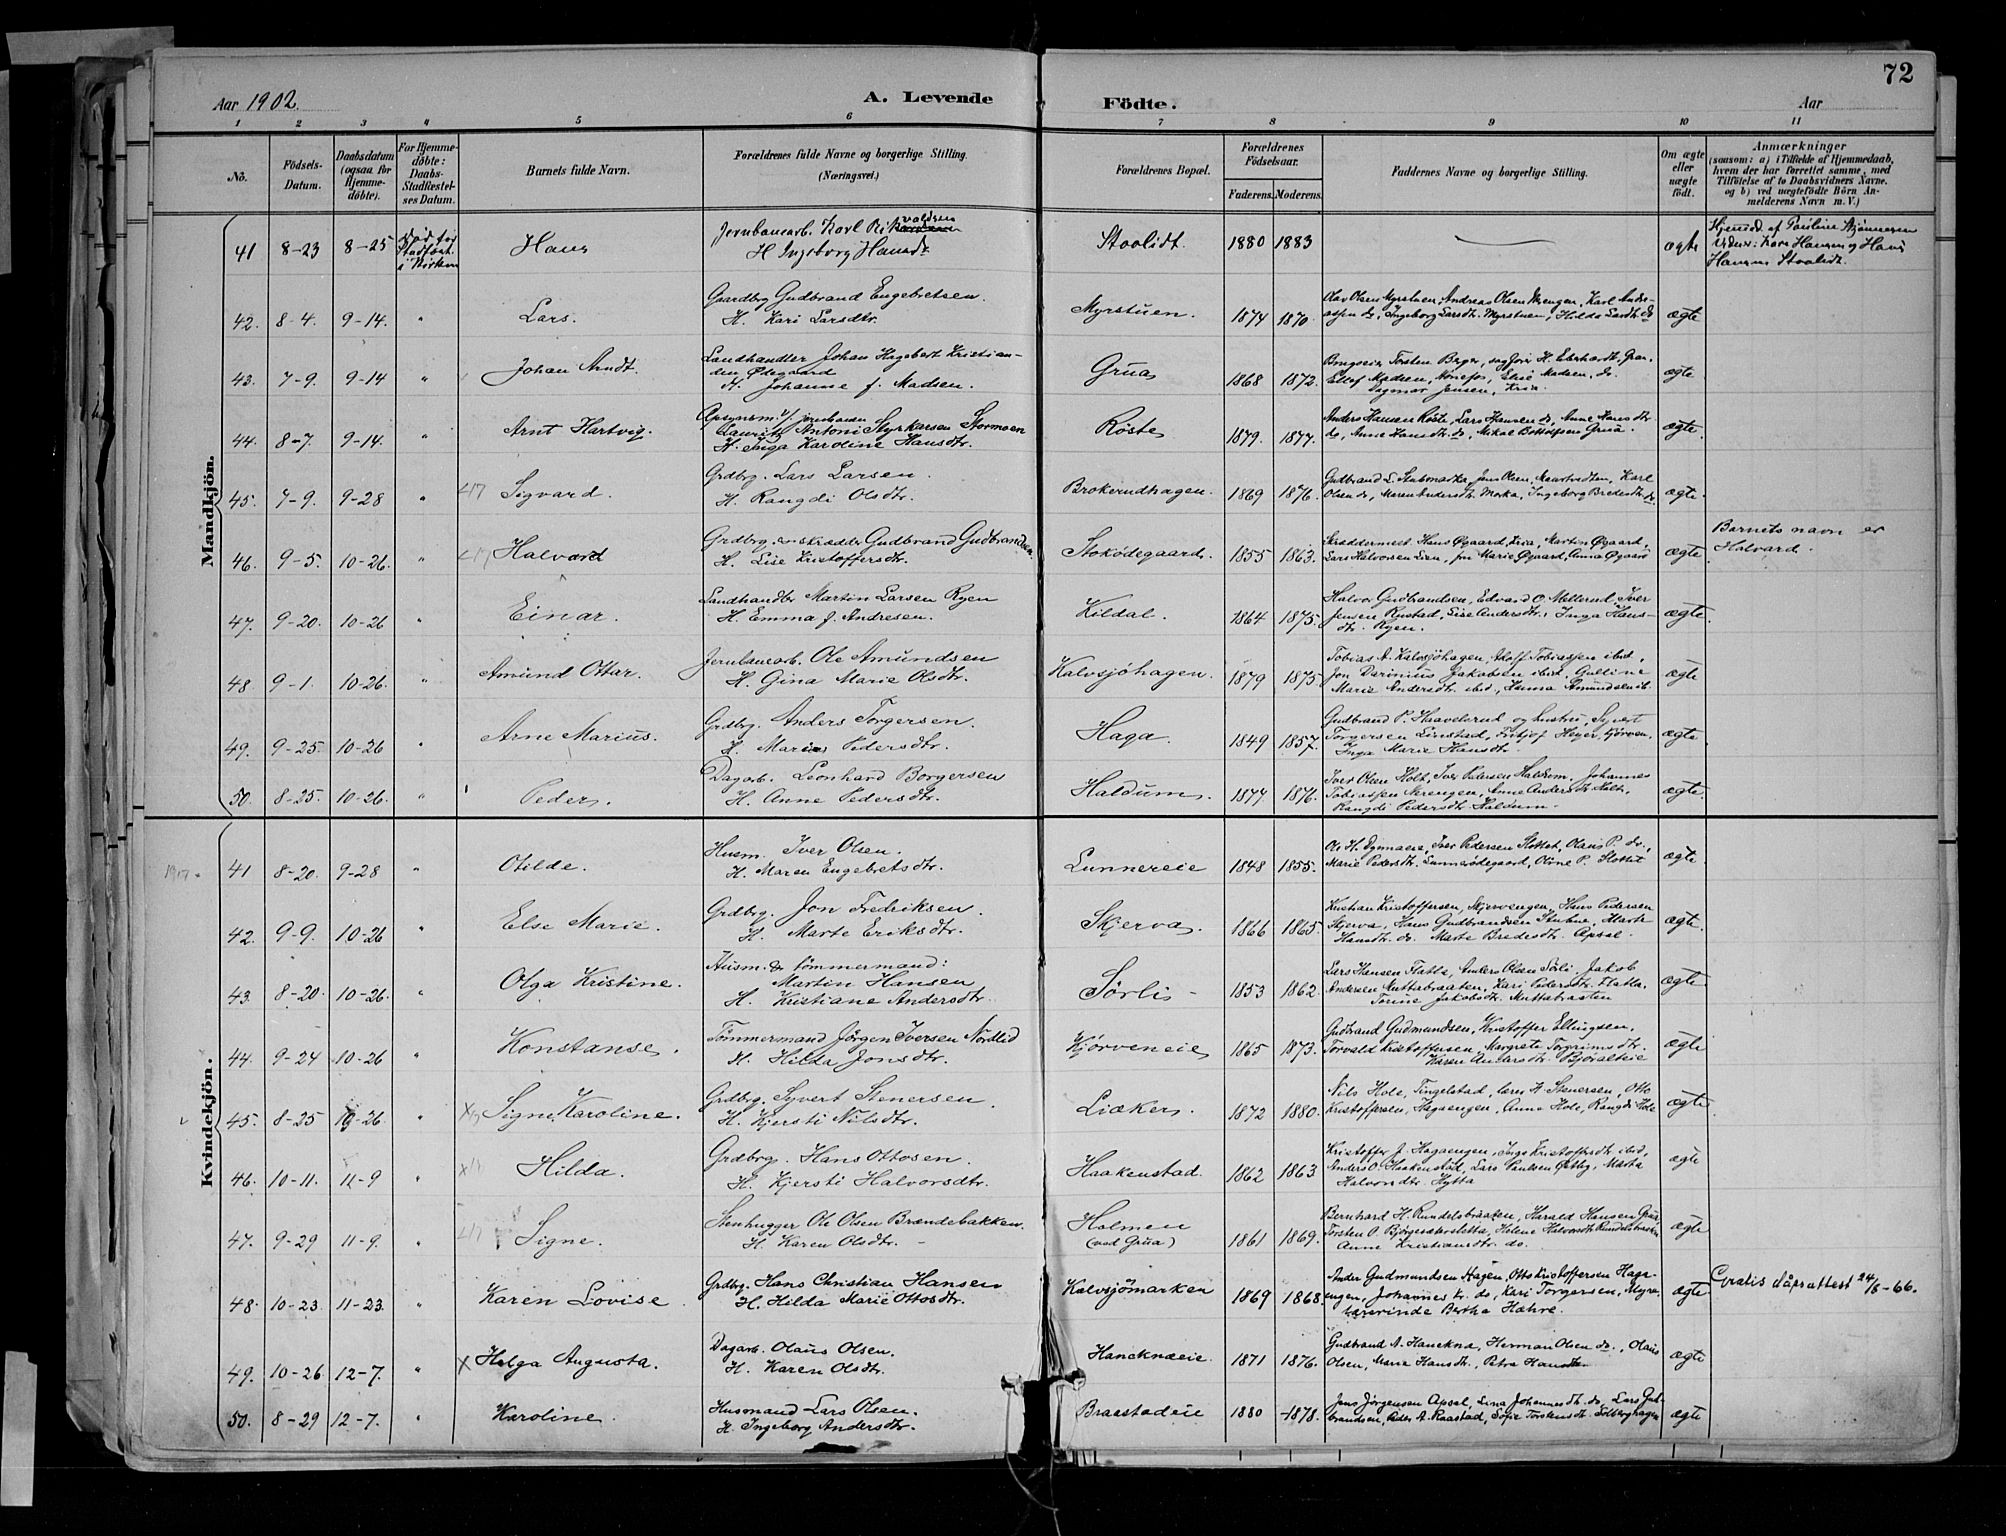 72
Aar 1902. A. Levende Födte. Aar
1 2 3 4 5 6 7 8 9 10 11
No. Födsels-Datum. Daabsdatum (ogsaa for Hjemmedöbte). For Hjemmedöbte: Daabs-Stadfæstelses Datum. Barnets fulde Navn. Forældrenes fulde Navne og borgerlige Stilling. (Næringsvei.) Forældrenes Bopæl. Forældrenes Födselsaar. Faderens. Moderens. Faddernes Navne og borgerlige Stilling. Om ægte eller uægte födt. Anmærkninger (saasom: a) i Tilfælde af Hjemmedaab, hvem der har forrettet samme, med Tilföielse af to Daabsvidners Navne, og b) ved uægtefödte Börn Anmelderens Navn m. V.)
Mandkjön.
41 8-23 8-25 Hans Jernbanearb. Karl Rikvoldsen
H Ingeborg Hansdr Staalidt. 1880 1883 ægte
Hansen Staalidt.
42. 8-4. 9-14. " Lars. Gaardbrg Gudbrand Engebretsen.
H. Kari Larsdtr. Myrstuen. 1874 1870. Olav Olsen Myrstuen, Andreas Olsen Myrengen, Karl Andreassen do, Ingeborg Larsdt. Myrstuen, Hilda Larsdtr. do ægte
43. 7-9. 9-14 " Johan Arndt. Landhandler Johan Hagebert Kristian-
den Ødegaard
H. Johanne f. Madsen. Grua 1868 1872. Torsten Berger, H. Eberhardt, Gran.
Ellef Madsen, Hönefos, Elise Madsen, do.
Dagmar Jensen, Kria. ægte
44. 8-7. 9-14. " Arnt Hartvig. Opsynsm. v/ jernbanen
Lauritz Antoni Styrkarsen Stormoen
H. Inga Karoline Hansdtr. Röste 1879. 1877. Anders Hansen Röste, Lars Hansen do, Anne Hansdtr.
do, Anne Hansdtr. do, Mikal Bottolfsen Grua. ægte.
45. 7-9. 9-28 " Sigvard. Grdbrg. Lars Larsen.
H. Rangdi Olsdtr. Brokerudhagen. 1869 1876. Gudbrand L. Stubmarka, Jens Olsen, Karl
Olsen do, Maren Andersdtr. Morka, Ingeborg Bredesdtr. do ægte.
46. 9-5. 10-26. " Halvard Grdbrg. og skrædder Gudbrand Gudbrandsen
H. Lise Kristoffersdtr. Stoködegaard. 1855 1863. Skræddermest. Hans Øgaard, Kria, Martin Øgaard,
Lars Halvorsen Lien, frn Marie Øgaard, Anna Øgaard ægte Barnets navn er
Halvard.
47. 9-20. 10-26 " Einar. Landhandler Martin Larsen Ryen
H. Emma f. Andresen. Kildal 1864 1875. Halvor Gudbrandsen, Edvard O. Mellerud, Iver
Jensen Rustad, Lise Andersdtr., Inga Hans-
dtr. Ryen. ægte.
48. 9-1. 10-26. " Amund Ottar. Jernbanearb. Ole Amundsen
H. Gina Marie Olsdtr. Kalvsjöhagen. 1879 1875 Tobias A. Kalvsjöhagen, Adolf Tobiassen ibid,
Jon Darinius Jakobsen ibid, Gulline
Marie Andersdtr. ibid, Hanna Amundsen ib. ægte
49. 9-25. 10-26 " Arne Marius. Grdbrg. Anders Torgersen.
H. Marias Pedersdtr. Haga. 1849 1857. Gudbrand P. Haavelerud og hustru, Syvert
Torgersen Linstad, Fritjof Heyer, Kjørven,
Inga Marie Hansdtr. ægte.
50. 8-25. 10-26. " Peder. Dagarb. Leonhard Borgersen
H. Anne Pedersdtr. Haldum. 1877 1876. Iver Olsen Holt, Iver Pedersen Haldum, Johannes
Tobiassen Nerengen, Anne Andersdtr Holt,
Rangdi Pedersdtr. Haldum. ægte.
Kvindekjön.
41 8-20. 9-28 " Otilde. Husm. Iver Olsen.
H. Maren Engebretsdtr. Lunnereie 1848 1855. Ole H. Dynnaeie, Iver Pedersen Slottet, Olaus P. do.,
Marie Pedersdtr. Lunnerödegaard, Oline P. Slottet ægte
42. 9-9. 10-26 " Else Marie. Grdbrg. Jon Fredriksen.
H. Marte Eriksdtr. Skjerva. 1866 1865. Kristian Kristoffersen, Skjervengen, Hans Pedersen
Skjerva, Hans Gudbrandsen Stubne, Marte
Hansdtr. do. Marte Bredesdtr. Apsal. ægte.
43. 8-20. 10-26. " Olga Kristine. Husm. & tömmermand:
Martin Hansen
H. Kristiane Andersdtr. Sørlis 1853 1862. Lars Hansen Flatla, Anders Olsen Sörli. Jakob
Andersen Muttabraaten, Kari Pedersdtr. Flatla,
Torine Jakobsdtr. Muttabraaten ægte.
44. 9-24 10-26 " Konstanse. Tömmermand Jörgen Iversen Nordlid
H. Hilda Jonsdtr. Kjørveneie 1865 1873. Gudbrand Gudmundsen, Kristoffer Ellingsen,
Torvald Kristoffersen, Margrete Torgrimsdtr.
Karen Andersdtr. Björalteie ægte
45. 8-25 10-26 " Signe Karoline. Grdbrg. Syvert Stenersen.
H. Kjersti Nilsdtr. Liaker. 1872 1880. Nils Hole, Tingelstad, Stenersen, Otto
Kristoffersen, Hagaengen, Anne Hole, Rangdi Hole ægte
46. 10-11. 11-9 " Hilda. Grdbrg. Hans Ottosen.
H. Kjersti Halvorsdtr. Haakenstad. 1862 1863 Kristoffer J. Hagaengen, Inga Kristoffersdtr ibid,
Anders O. Haakenstad, Lars Paulsen Östby, Marta
Halvorsdtr. Hytta ægte
47. 9-29 11-9. " Signe. Stenhugger Ole Olsen Brændebakken.
H. Karen Olsdtr. Holmen
(ved Grua) 1861 1869. Bernhard H. Rundelsbraaten, Harald Hansen Grua
Torsten O. Helene Halvorsdtr Rundelsbraaten
Anne Kristiansdtr. do. ægte
48. 10-23. 11-23. " Karen Lovise. Grdbrg. Hans Christian Hansen
H. Hilda Marie Ottosdtr. Kalvsjömarken 1869 1868. Ander Gudmundsen Hagen, Otto Kristoffersen Haga-
engen, Johannes Kr. do, Kari Torgersen, Myra,
lærerinde Bertha Hahre. ægte Gratis dåpsattest 24/8-66.
49. 10-26. 12-7. " Helga Augusta. Dagarb. Olaus Olsen.
H. Karen Olsdtr. Hanekneeie. 1871 1876. Gudbrand A. Hanekna, Herman Olsen do., Olaus
Olsen, Maria Hansdtr., Petra Hansdtr ægte
50. 8-29 12-7. " Karoline. Husmand Lars Olsen.
H. Ingeborg Andersdtr. Braastadeie 1880 1878. Jens Jörgensen Apsal, Lina Johannesdtr. do, Lars Gud-
brandsen, Peder A. Raastad, Sofie Torstensdtr. Solberghagen ægte